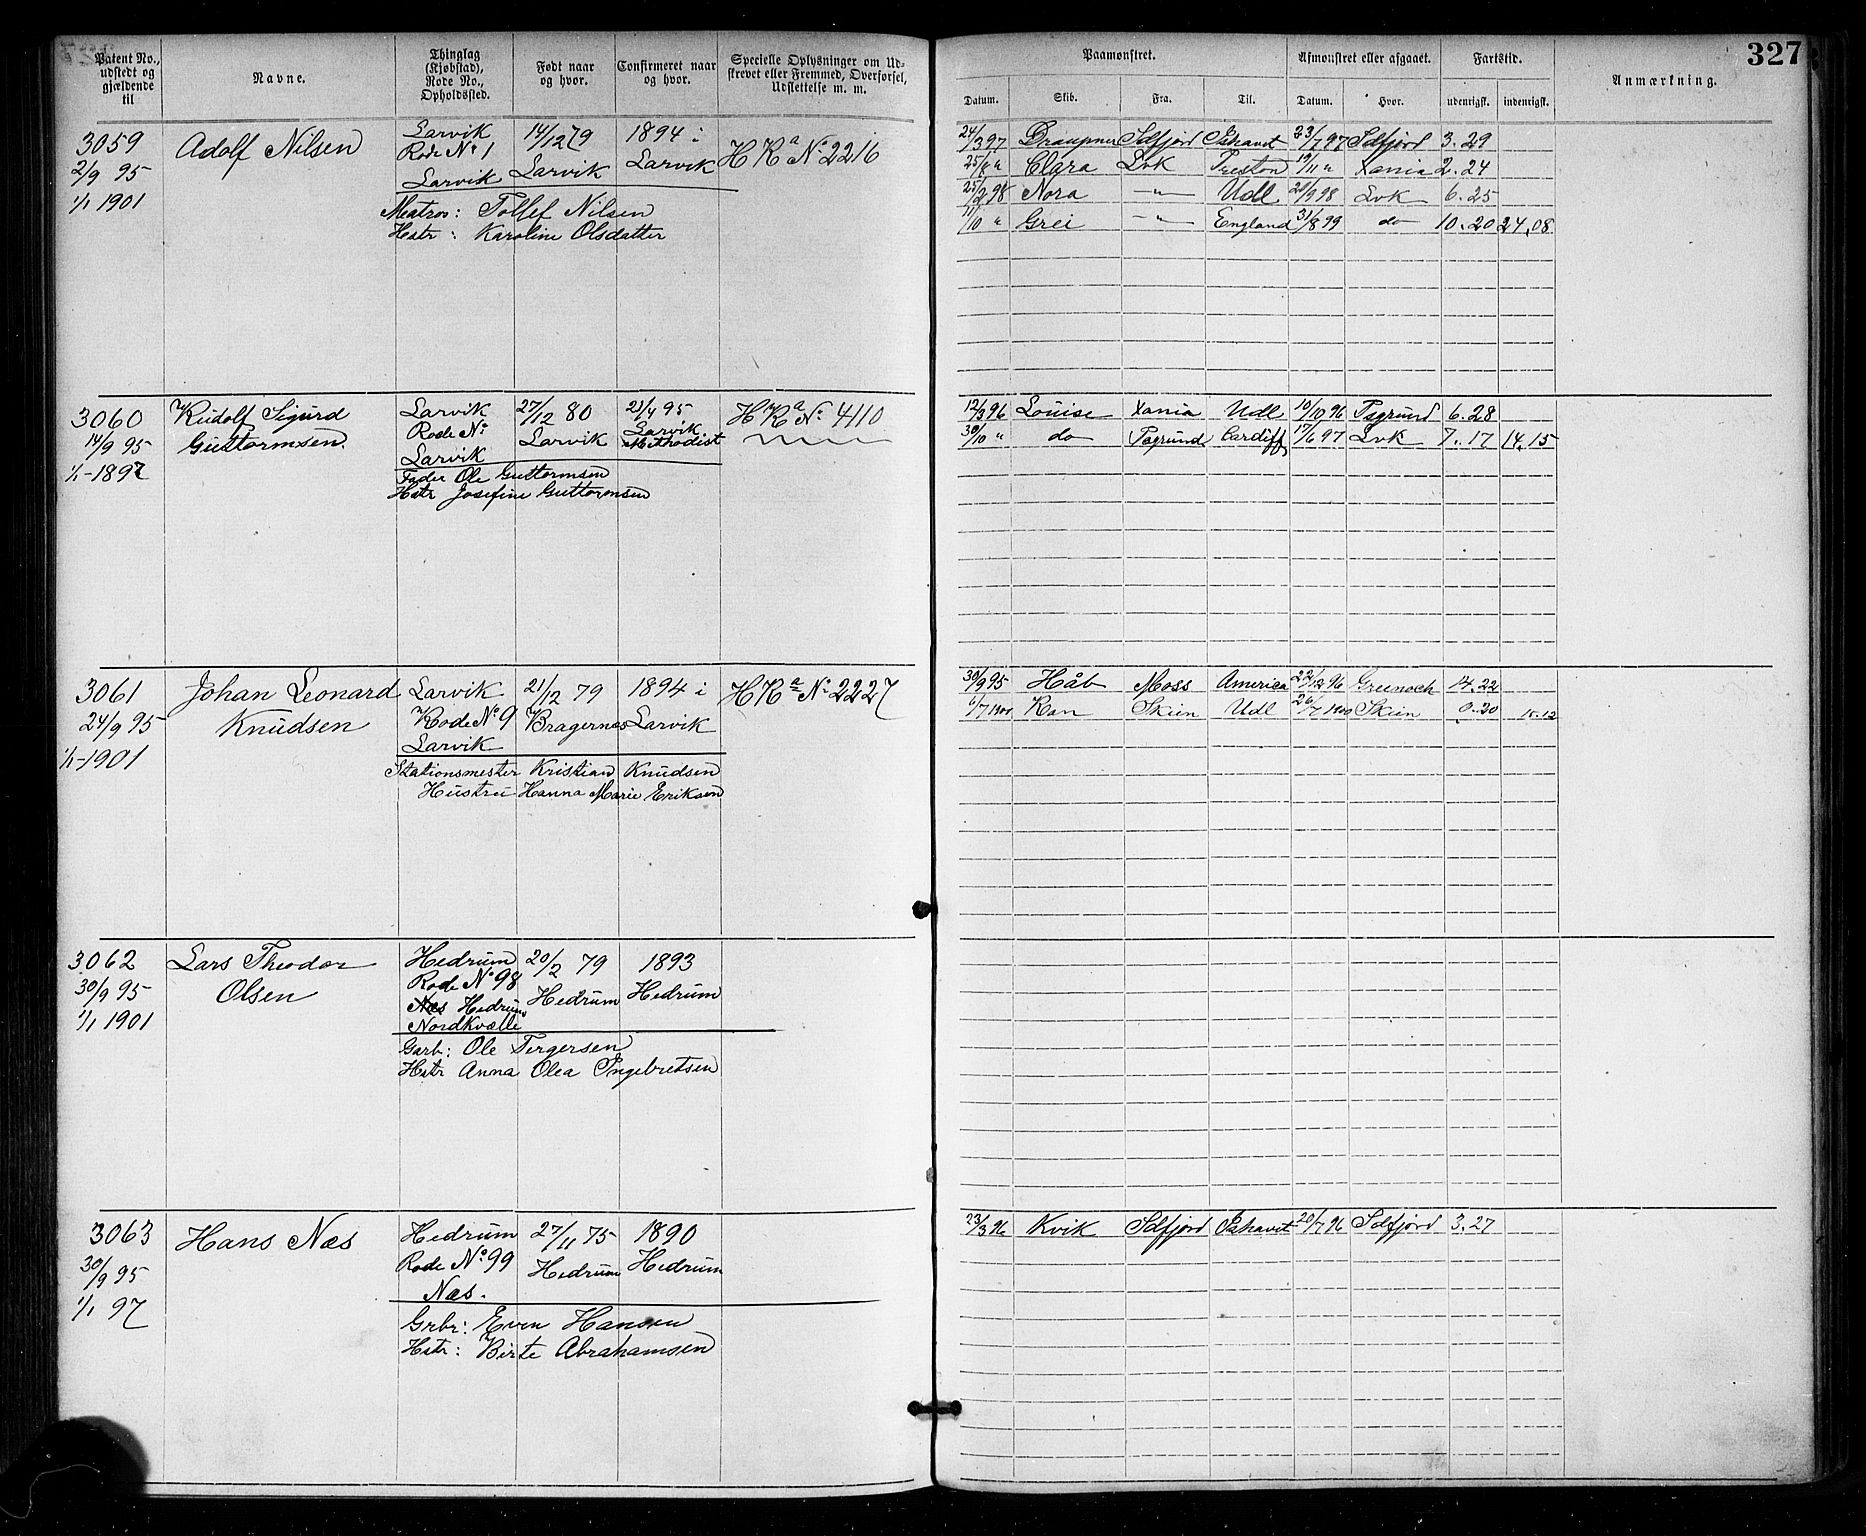 327
Patent No., udstedt og gjældende til
Navne.
Thinglag (Kjøbstad), Rode No., Opholdssted.
Født naar og hvor.
Confirmeret naar og hvor.
Specielle Oplysninger om Udskrevet eller Fremmed, Overførsel, Udslettelse m. m.
Paamønstret.
Afmønstret eller afgaaet.
Fartstid.
Anmærkning.
Datum. Skib. Fra. Til. Datum. Hvor. udenrigsk. indenrigsk.
3059 Adolf Nilsen Larvik 14/12 79 1894 i
2/9 95 Rode No 1 Larvik Larvik H Ra No 2216
1/1 1901 Larvik
Matros: Tollef Nilsen
Hstr: Karoline Olsdatter
24/3 97 Draupner Sdfjord Ishavet 23/7 97 Sdfjord 3.29
25/8 " Clara Lvk Preston 19/11 " Xania 2.24
25/2 98 Nora -"- Udl 98 Lvk 6.25
11/10 " Grei -"- England 31/8 99 do 10.20 24.08
3060 Rudolf Sigurd Larvik 27/12 80 95 H Ra No 4110
14/9 95 Guttormsen Rode No Larvik Larvik Methodist
1/1-1897 Larvik
Fader Ole Guttormsen
Hstr Josefine Guttormsen
12/3 96 Louise Xania Udl 10/10 96 Psgrund 6.28
30/10 " do Psgrund Cardiff 17/6 97 Lvk 7.17 14.15
3061 Johan Leonard Larvik 21/12 79 1894 i H Ra No 2227
24/9 95 Knudsen Rode No 9 Bragernæs Larvik
1/1-1901 Larvik
Stationsmester Kristian Knudsen
Hustru Hanna Marie Eriksen
30/9 95 Håb Moss America 22/12 96 Greenoch 14.22
6/7 1900 Ran Skien Udl 26/7 1900 Skien 0.20 15.12
3062 Lars Theodor Hedrum 20/2 79 1893
30/9 95 Olsen Rode No 98 Hedrum Hedrum
1/1 1901 Næs Hedrum
Nordkvelle
Garb: Ole Tergersen
Hstr Anna Olea Ingebretsen
3063 Hans Næs Hedrum 27/11 75 1890
30/9 95 Rode No 99 Hedrum Hedrum
1/1 97 Næs.
Grbr: Even Hansen
Hstr: Birte Abrahamsen
23/3 96 Kvik Sdfjord Ishavet 20/7 96 Sdfjord 3.27